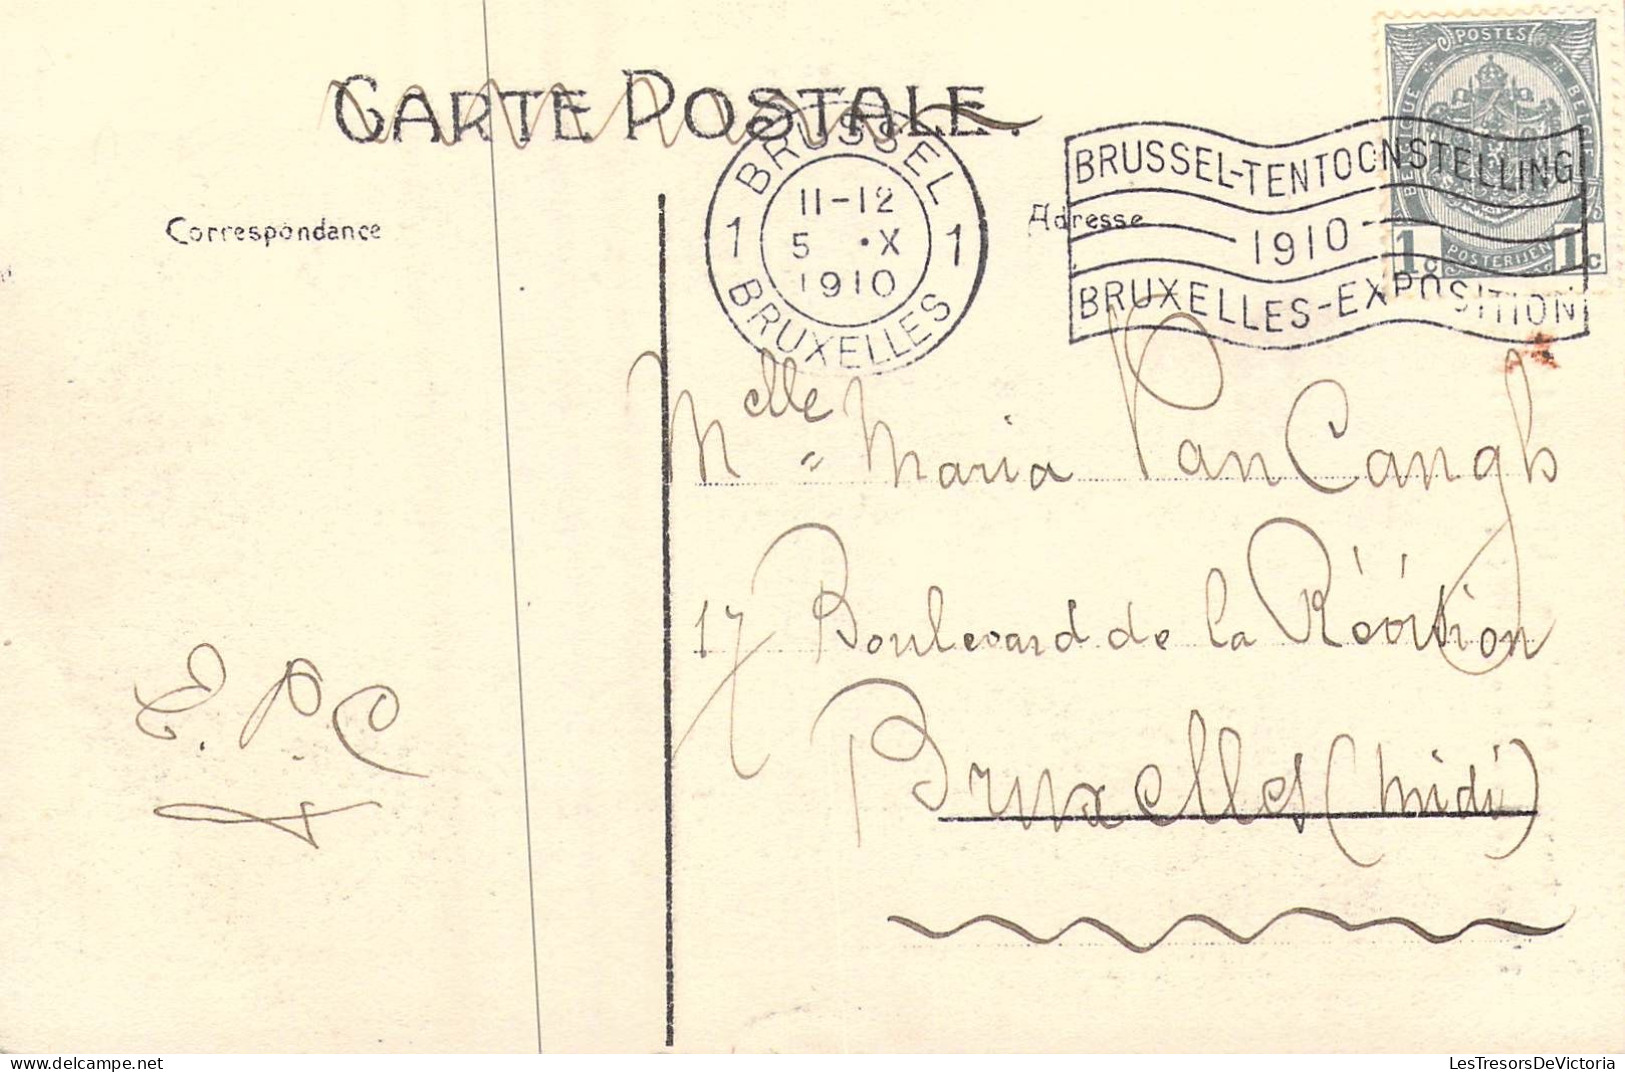 CARTE POSTALE.
Correspondance
Adresse
BRUSSEL
11-12
5 •X
1910
1 1
BRUXELLES
BRUSSEL-TENTOONSTELLING
1910
BRUXELLES-EXPOSITION
POSTES
BELGIQUE
BELGIË
POSTERIJEN
1c 1c
Melle Maria Van Cangh
17 Boulevard de la Révision
Bruxelles (Midi)
E. P. C
delcampe.net
LesTresorsDeVictoria